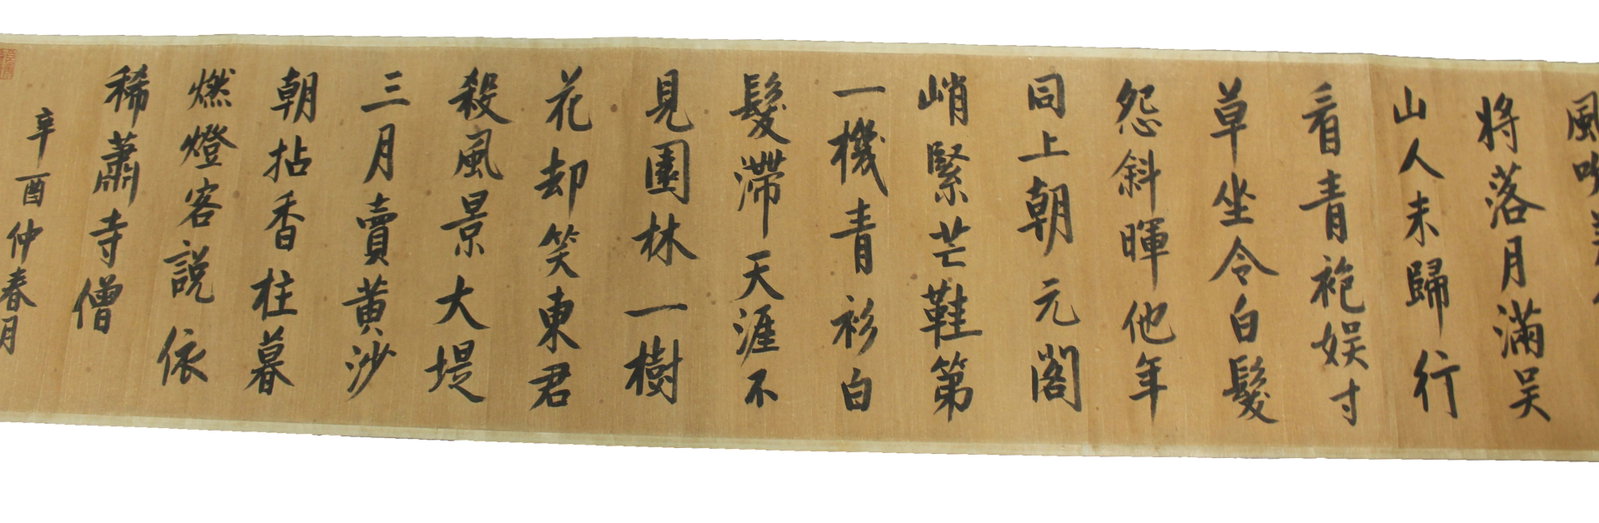 風吹
將落月滿吴
山人未歸行
看青袍娱寸
草坐令白髮
怨斜暉他年
同上朝元閣
峭緊芒鞋第
一機青衫白
髮滯天涯不
見園林一樹
花却笑東君
殺風景大堤
三月賣黄沙
朝拈香炷暮
燃燈客説依
稀蕭寺僧
辛酉仲春月